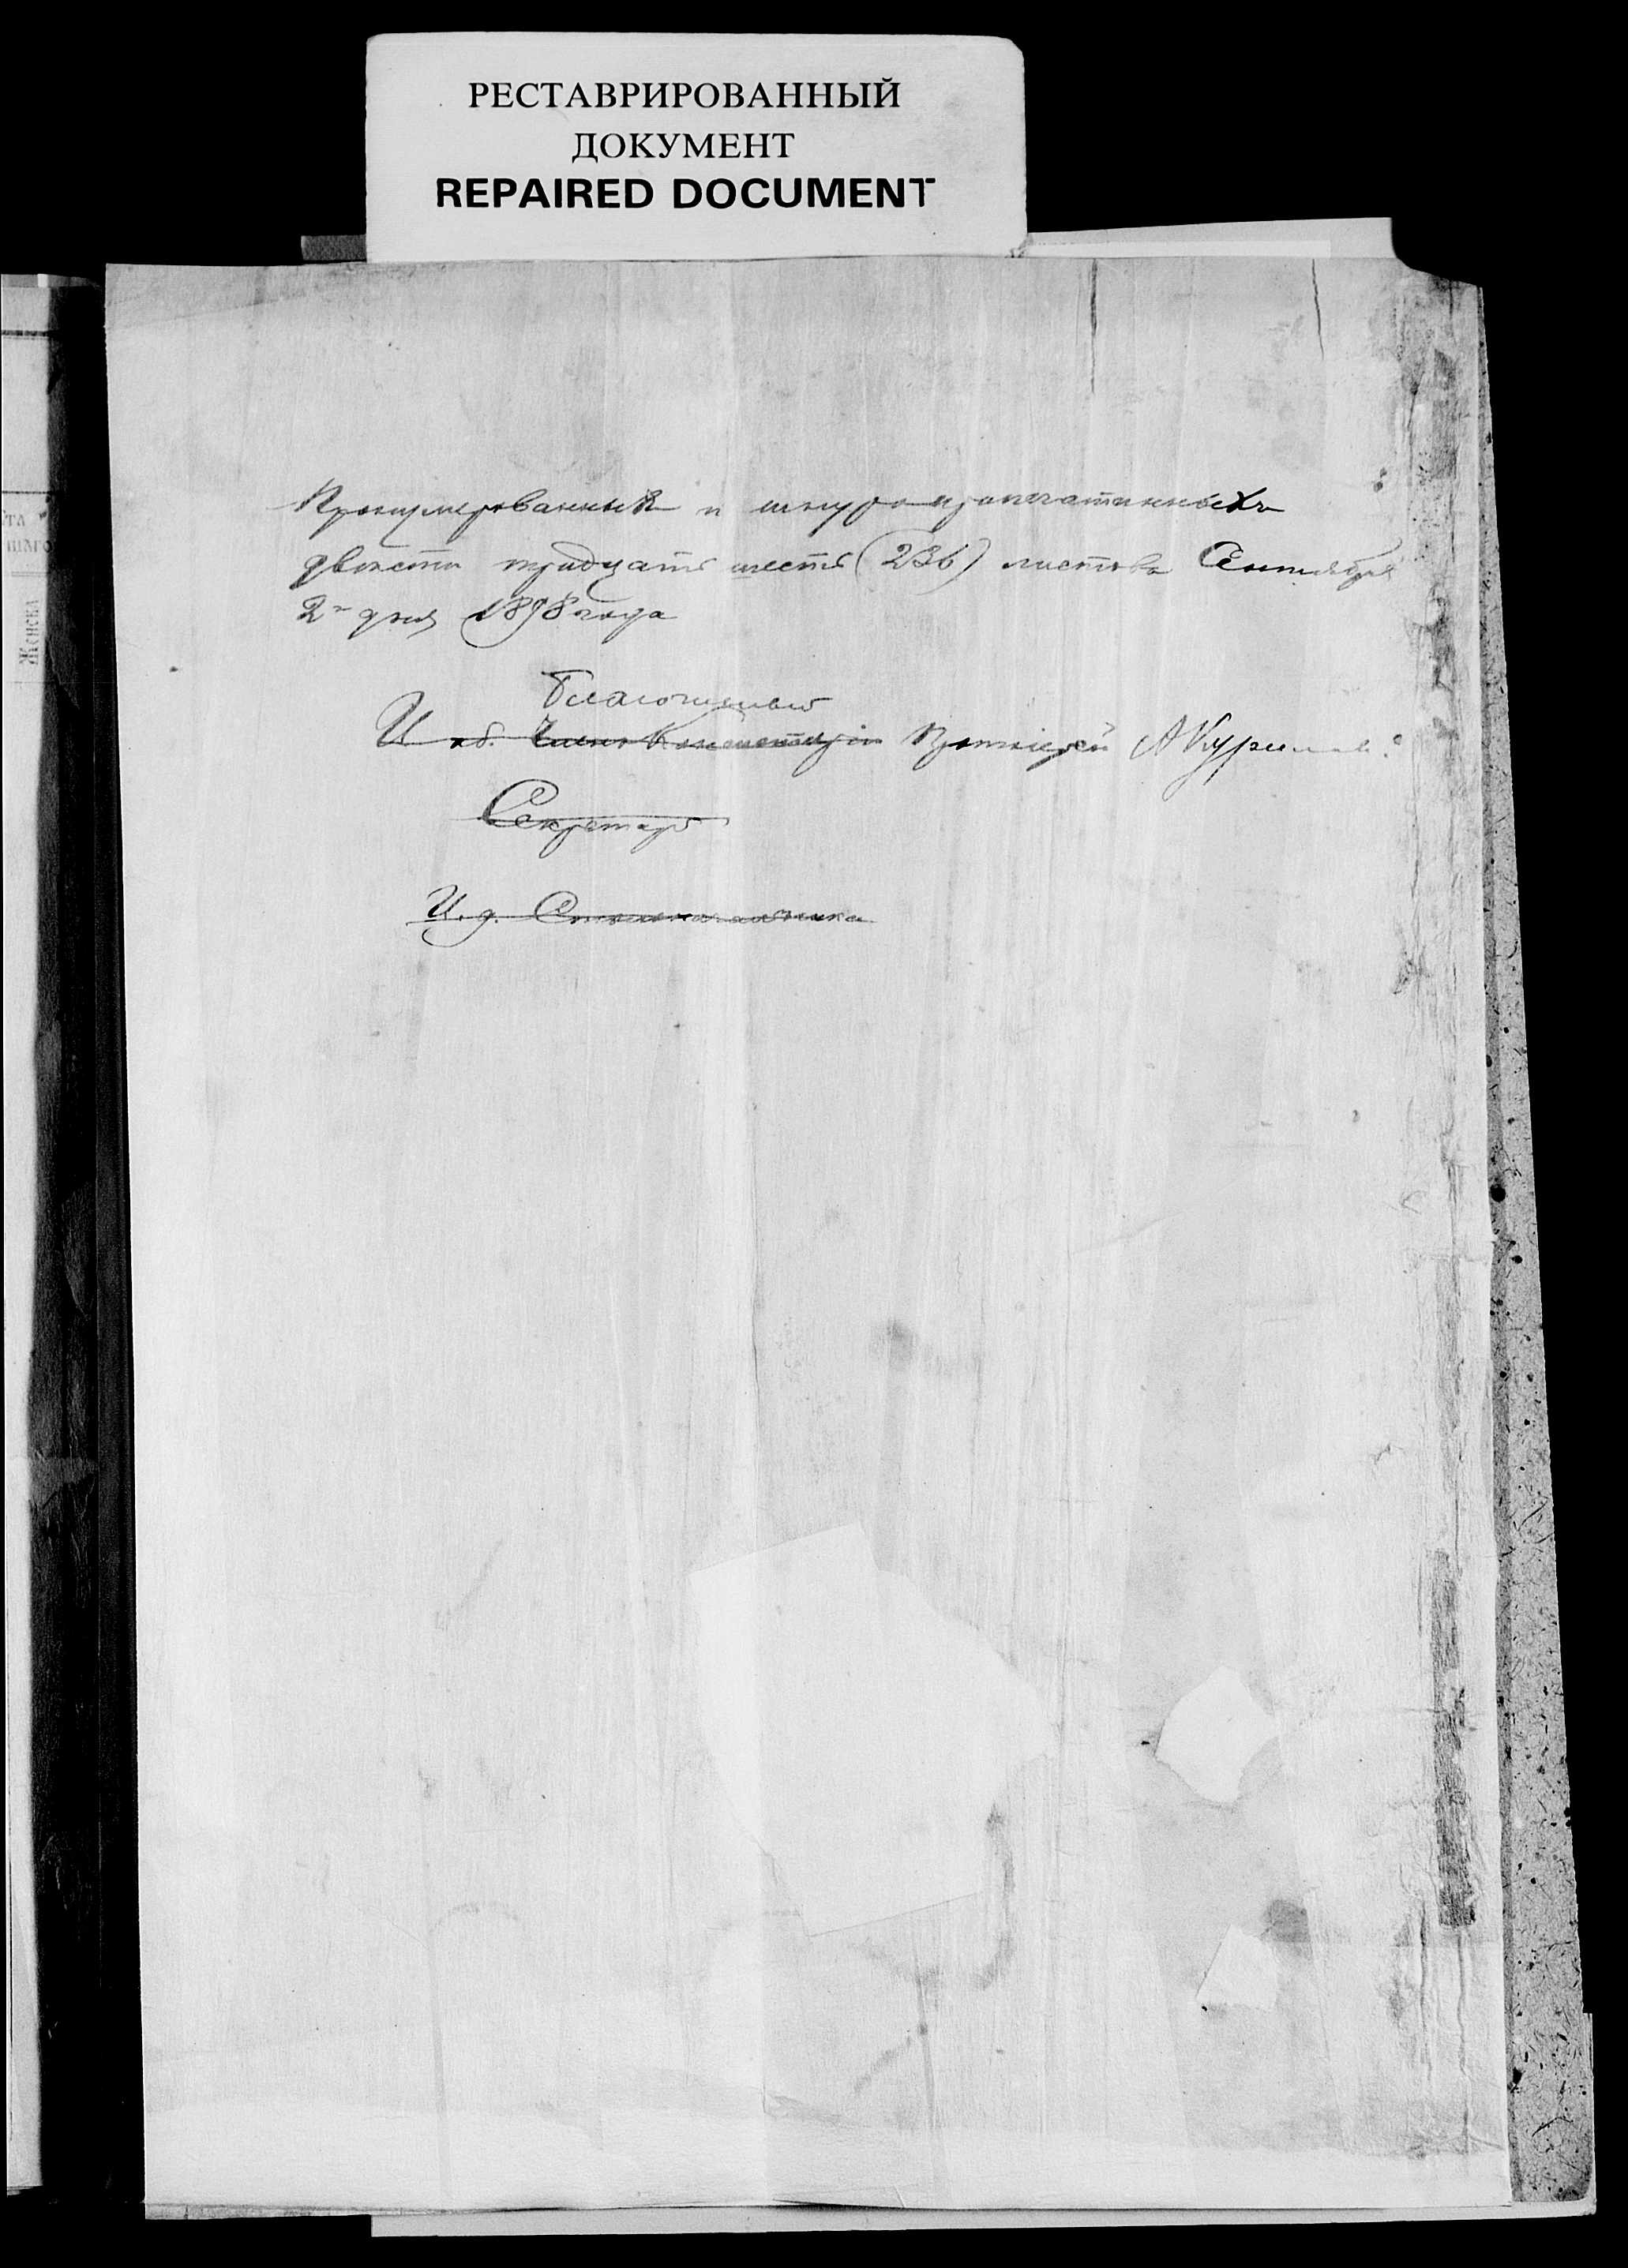 РЕСТАВРИРОВАННЫЙ
ДОКУМЕНТ
REPAIRED DOCUMENT
Пронумерованныхъ и шнурозапечатанныхъ
двѣсти тридцать шесть (236) листовъ Сентября
2 дня 1898 года
Благочинный
И. об. Члена Консисторіи Протоіерей А
Секретарь
И. д. Столоначальника